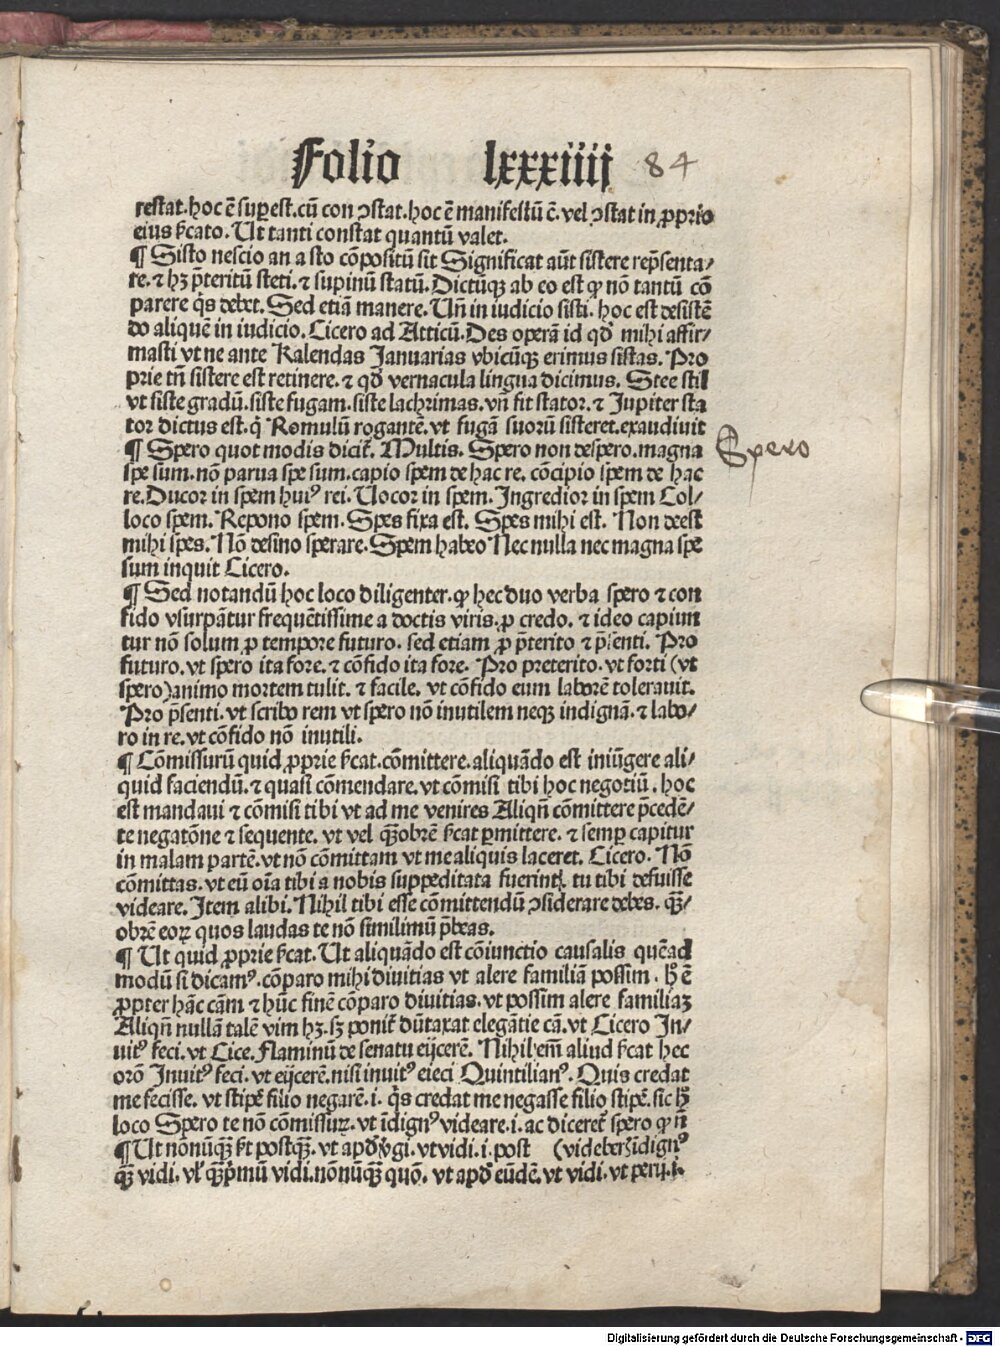 Folio lxxxiiij 84
restat. hoc ē suꝑest. cū con ꝯstat. hoc ē manifestū ē. vel ꝯstat in ꝓprio
eius ſicato. Ut tanti constat quantū valet.
¶ Sisto nescio an a sto cōpositū sit Significat aūt sistere repn̄senta⸗
re. ⁊ hꝫ p̄teritū steti. ⁊ supinū statū. Dictūqꝫ ab eo est ꝙ nō tantū cō
parere q̄s debet. Sed etiā manere. Un̄ in iudicio sisti. hoc est desistē
do aliquē in iudicio. Cicero ad Atticū. Des operā id qđ mihi affir⸗
masti vt ne ante Kalendas Januarias vbicūqꝫ erimus sistas. Pro
prie tn̄ sistere est retinere. ⁊ qđ vernacula lingua dicimus. Stee stil
vt siste gradū. siste fugam. siste lachrimas. vn̄ fit stator. ⁊ Jupiter sta
tor dictus est. q̇ Romulū rogantē. vt fugā suorū sisteret. exaudiuit
¶ Spero quot modis dicit̄. Multis. Spero non despero. magna
Spero
spe sum. nō parua spe sum. capio spem de hac re. cōcipio spem de hac
re. Ducor in spem huiꝰ rei. Uocor in spem. Ingredior in spem Col⸗
loco spem. Repono spem. Spes fixa est. Spes mihi est. Non deest
mihi spes. Nō desino sperare. Spem habeo Nec nulla nec magna spe
sum inquit Cicero.
¶ Sed notandū hoc loco diligenter. ꝙ hec duo verba spero ⁊ con
fido vsurpātur frequētissime a doctis viris. ꝓ credo. ⁊ ideo capiun
tur nō solum ꝓ tempore futuro. sed etiam ꝓ p̄terito ⁊ p̄senti. Pro
futuro. vt spero ita fore. ⁊ cōfido ita fore. Pro preterito. vt forti (vt
spero) animo mortem tulit. ⁊ facile. vt cōfido eum laborē tolerauit.
Pro p̄senti. vt scribo rem vt spero nō inutilem neqꝫ indignā. ⁊ labo⸗
ro in re. vt cōfido nō inutili.
¶ Cōmissurū quid ꝓprie ſicat. cōmittere. aliquādo est iniūgere ali⸗
quid faciendū. ⁊ quasi cōmendare. vt cōmisi tibi hoc negotiū. hoc
est mandaui ⁊ cōmisi tibi vt ad me venires Aliqn̄ cōmittere p̄cedē⸗
te negatōne ⁊ sequente. vt vel qꝫobrē ſicat ꝑmittere. ⁊ semꝑ capitur
in malam partē. vt nō cōmittam vt me aliquis laceret. Cicero. Nō
cōmittas. vt eū oīa tibi a nobis suppeditata fuerint. tu tibi defuisse
videare. Item alibi. Nihil tibi esse cōmittendū ꝯsiderare debes. qꝫ⸗
obrē eoꝝ quos laudas te nō similimū p̄beas.
¶ Ut quid ꝓprie ſicat. Ut aliquādo est cōiunctio causalis quēad
modū si dicamꝰ. cōparo mihi diuitias vt alere familiā possim. hͦ ē
ꝓpter hāc cām ⁊ hūc finē cōparo diuitias. vt possim alere familiaꝫ
Aliqn̄ nullā talē vim hꝫ. sꝫ ponit̄ dūtaxat elegātie cā. vt Cicero In⸗
uitꝰ feci. vt Cice. Flaminū de senatu eijcerē. Nihil em̄ aliud ſicat hec
orō Inuitꝰ feci. vt eijcerē. nisi inuitꝰ eieci Quintilianꝰ. Quis credat
me fecisse. vt stipē filio negarē. i. q̇s credat me negasse filio stipē. sic hͦ
loco Spero te nō cōmissuꝝ. vt īdignꝰ videare. i. ac diceret̄ spero ꝙ n̄
¶ Ut nonūqꝫ fit postqꝫ. vt apđ v̇gi. vt vidi. i. post (videberis īdignꝰ
qꝫ vidi. vl̓ qꝫ p̄mū vidi. nōnūqꝫ quō. vt apđ eūdē. vt vidi. vt perij. i.